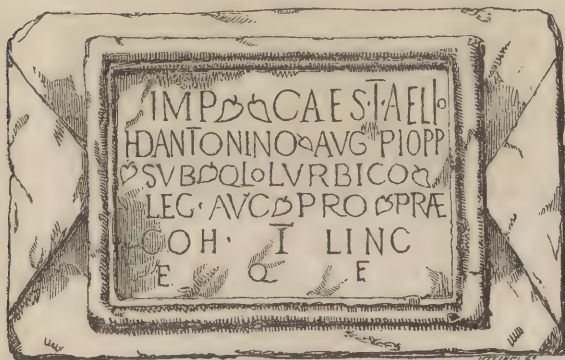 IMP ❧ ❧ CAES·T̄·AELIO
HD ANTONINO ❧ AUG PIOPP
❧ SVB ❧ QLOLVRBICO ❧
LEG·AVC ❧ PRO ❧ PRÆ
COH· Ī LINC
E. Q E